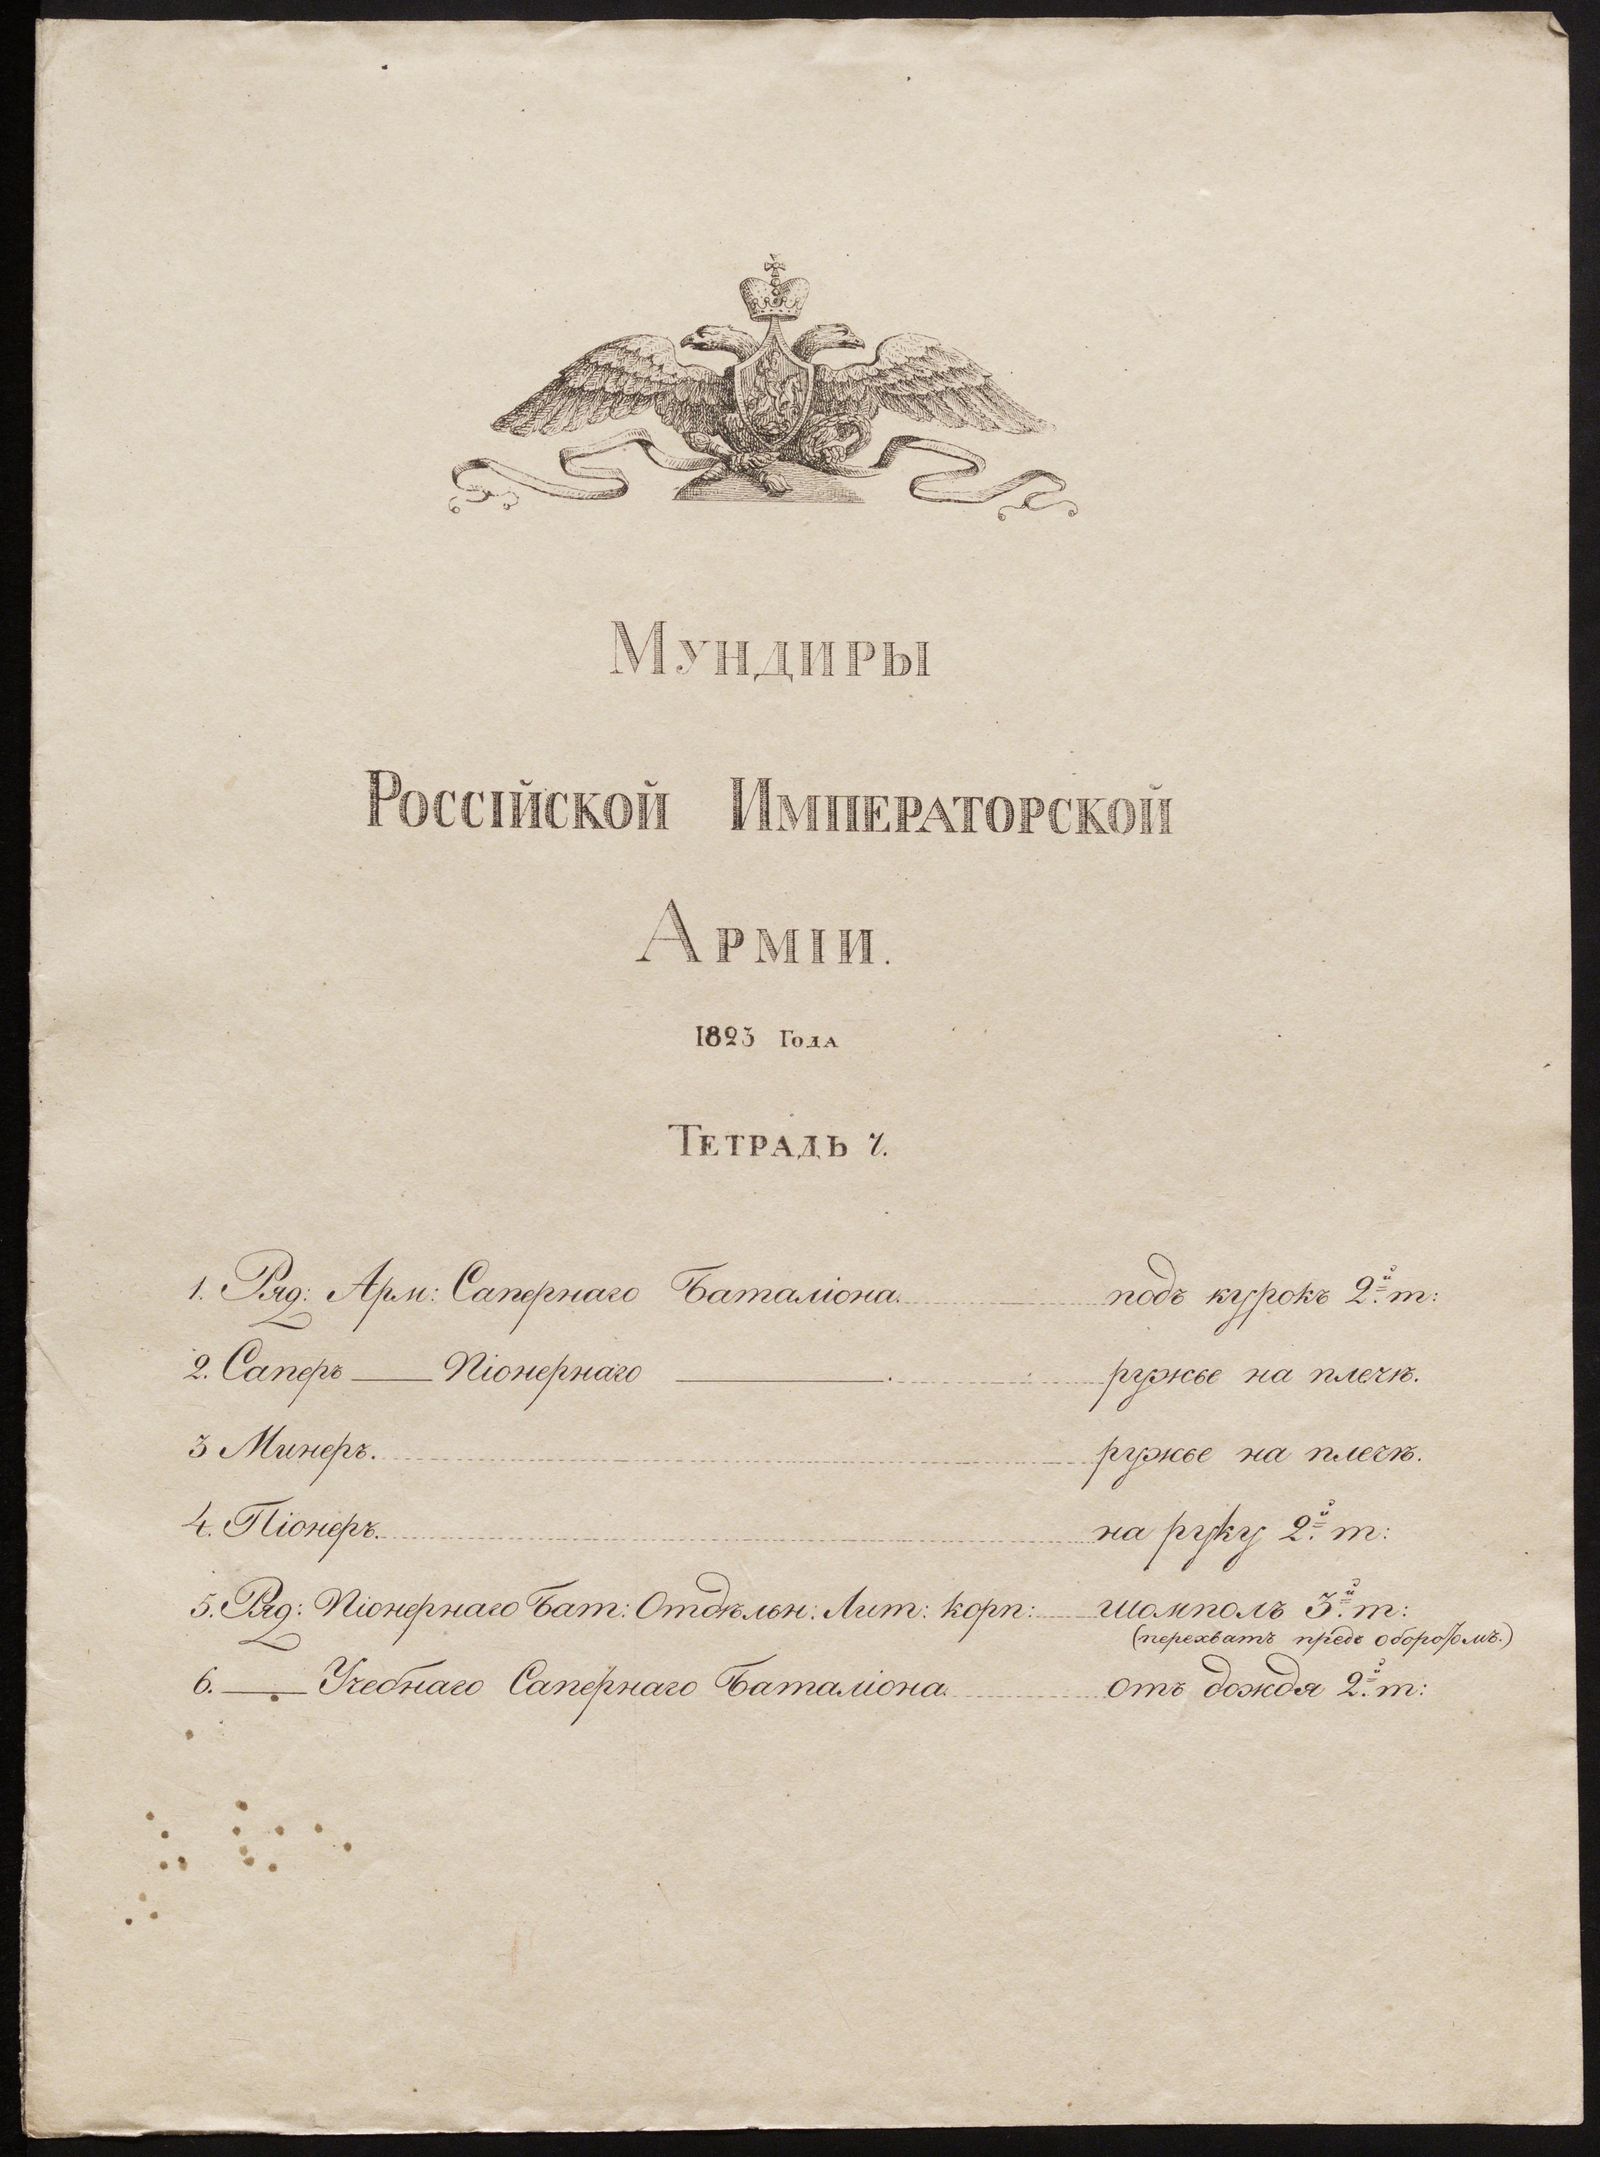 Мундиры
Россійской Императорской
Арміи.
1823 Года
Тетрадь 7.
1. Ряд: Арм: Сапернаго Баталіона. подъ курокъ 2й. т:
2. Саперъ — Піонернаго — . ружье на плечѣ.
3 Минеръ. ружье на плечѣ.
4. Піонеръ. на руку 2й. т:
5. Ряд: Піонернаго Бат: Отдѣльн: Лит: корп: шомполъ 3й. т:
(перехватъ предъ оборотомъ.)
6. — Учебнаго Сапернаго Баталіона. отъ дождя 2й. т: